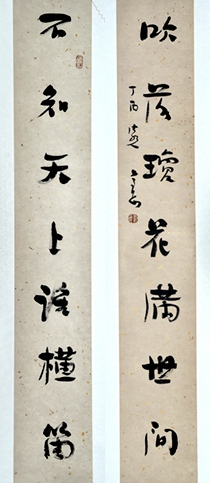 吹落瓊花滿世間
不知天上誰橫笛